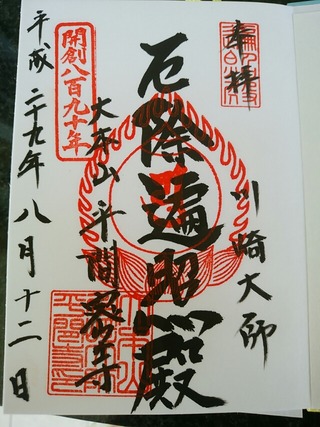 奉拝
川崎大師
厄除遍照殿
大本山平間寺
開創八百九十年
平成二十九年八月十二日